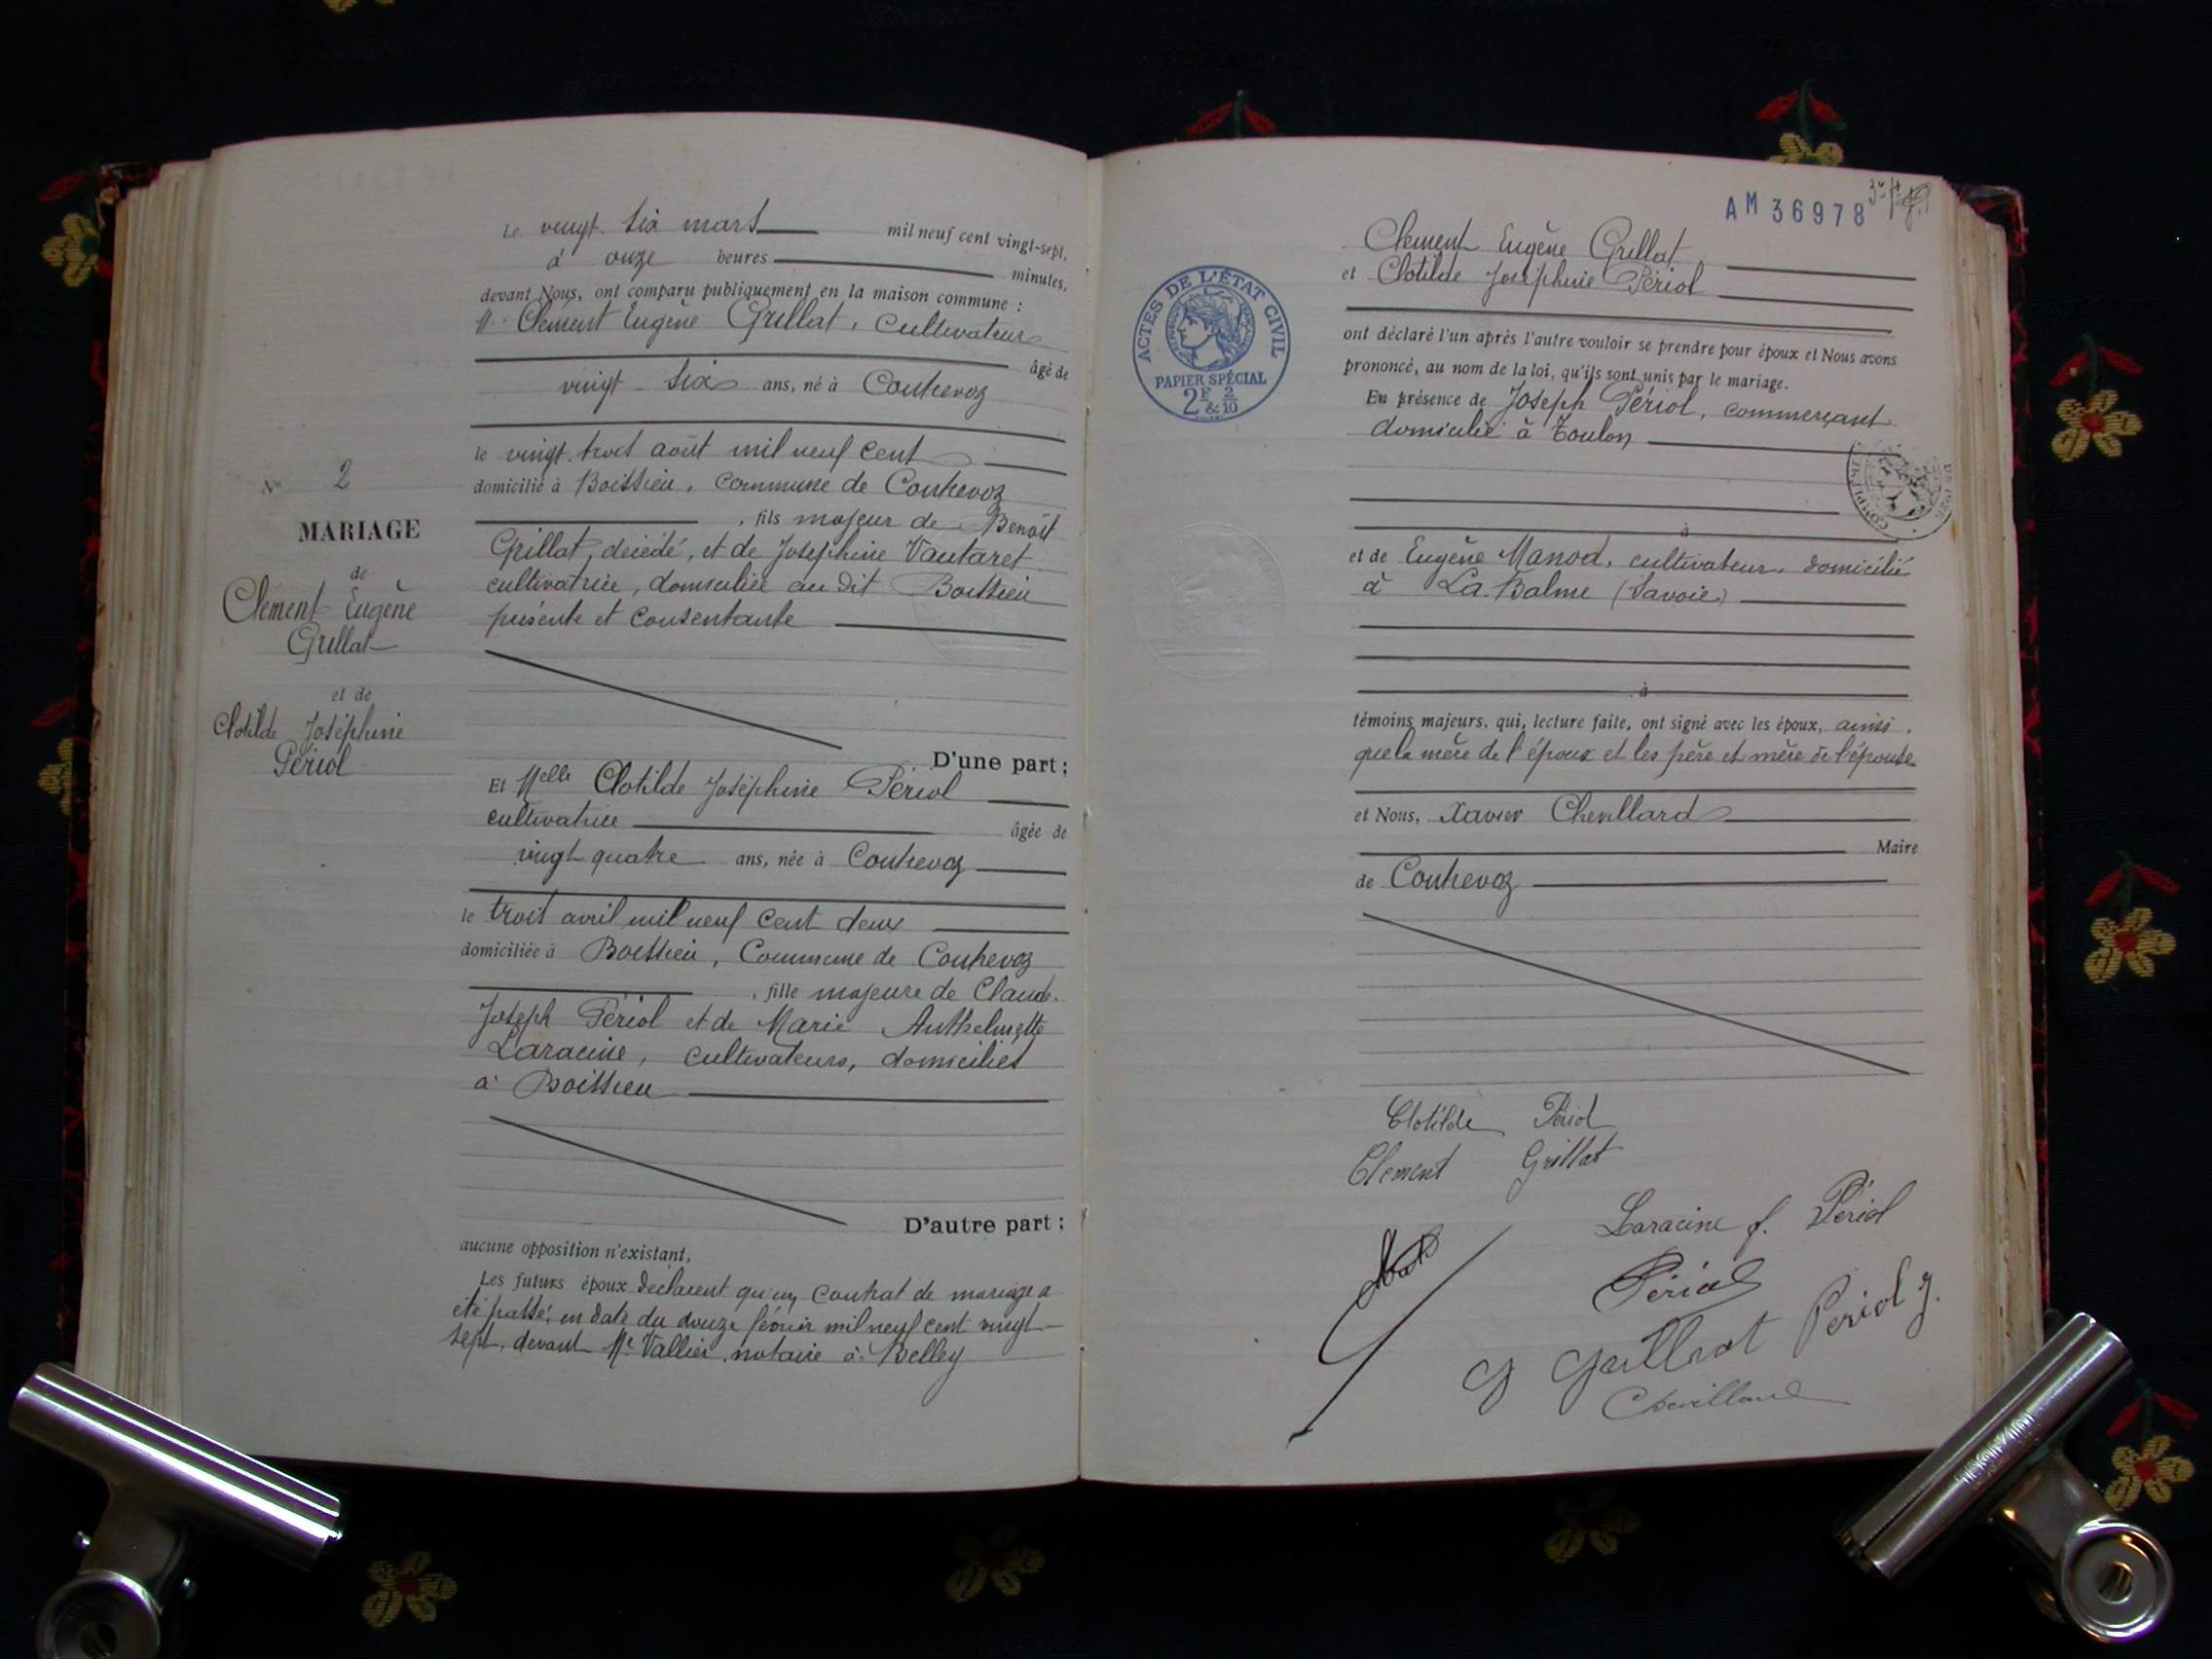 Le vingt six mars mil neuf cent vingt-sept,
à onze heures minutes,
devant Nous, ont comparu publiquement en la maison commune :
M. Clément Eugène Grillat, cultivateur
âgé de
vingt-six ans, né à Contrevoz
le vingt-trois août mil neuf cent
domicilié à Boissieu, commune de Contrevoz
, fils majeur de Benoît
Grillat, décédé, et de Joséphine Vautaret
cultivatrice, domiciliée au dit Boissieu
présente et consentante
D'une part ;
Et Melle Clotilde Joséphine Périol
cultivatrice âgée de
vingt quatre ans, née à Contrevoz
le trois avril mil neuf cent deux
domiciliée à Boissieu, Commune de Contrevoz
, fille majeure de Claude
Joseph Périol et de Marie Anthelmette
Laracine, cultivateurs, domiciliés
à Boissieu
D'autre part ;
aucune opposition n'existant,
Les futurs époux déclarent qu'un contrat de mariage a
été passé, en date du douze février mil neuf cent vingt-
sept, devant Me Vallier, notaire à Belley
N° 2
MARIAGE
de
Clément Eugène
Grillat
et de
Clotilde Joséphine
Périol
AM 36978
Clément Eugène Grillat
et Clotilde Joséphine Périol
ont déclaré l'un après l'autre vouloir se prendre pour époux et Nous avons
prononcé, au nom de la loi, qu'ils sont unis par le mariage.
En présence de Joseph Périol, commerçant
domicilié à Toulon
à
et de Eugène Manod, cultivateur, domicilié
à La Balme (Savoie)
à
témoins majeurs, qui, lecture faite, ont signé avec les époux, ainsi
que la mère de l'époux et les père et mère de l'épouse
et Nous, Xavier Chevillard
Maire
de Contrevoz
Clotilde Périol
Clement Grillat
Laracine f. Périol
Périol
Périol J.
Chevillard
ACTES DE L'ÉTAT CIVIL
PAPIER SPÉCIAL
2F & 2/10